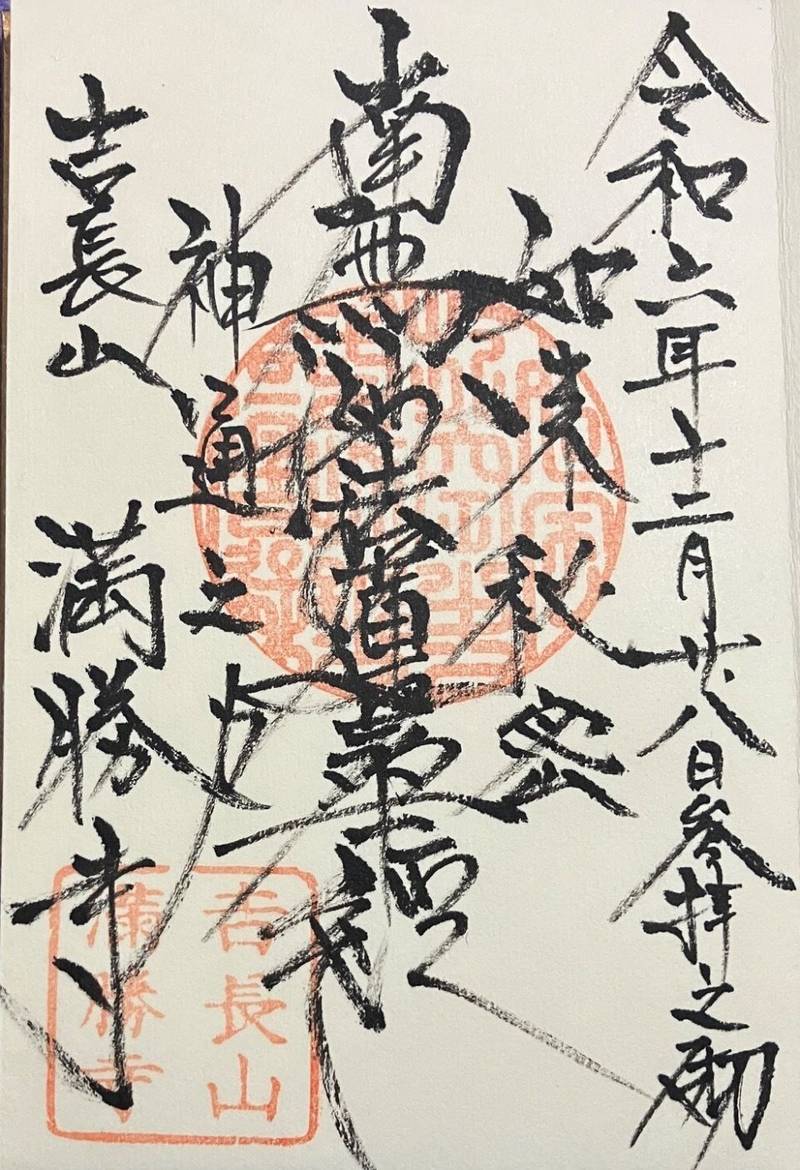 令和六年十二月廿八日参拝之砌
如来秘密
南無妙法蓮華經
神通之力
吉長山 満勝寺
吉長山
満勝寺